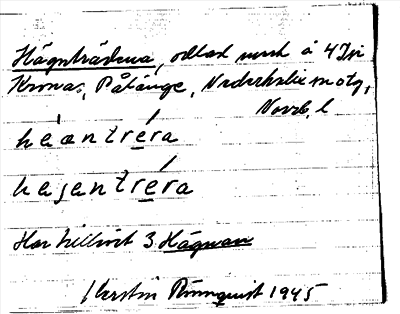 Hägnträdena, odlad mark å 4 Jn
Kronas, Påtänge, Nederkalix
Norrb. l.
heantréra
hejentréra
Har tillhört 3 Hägnan
Kerstin Rönnquist 1945